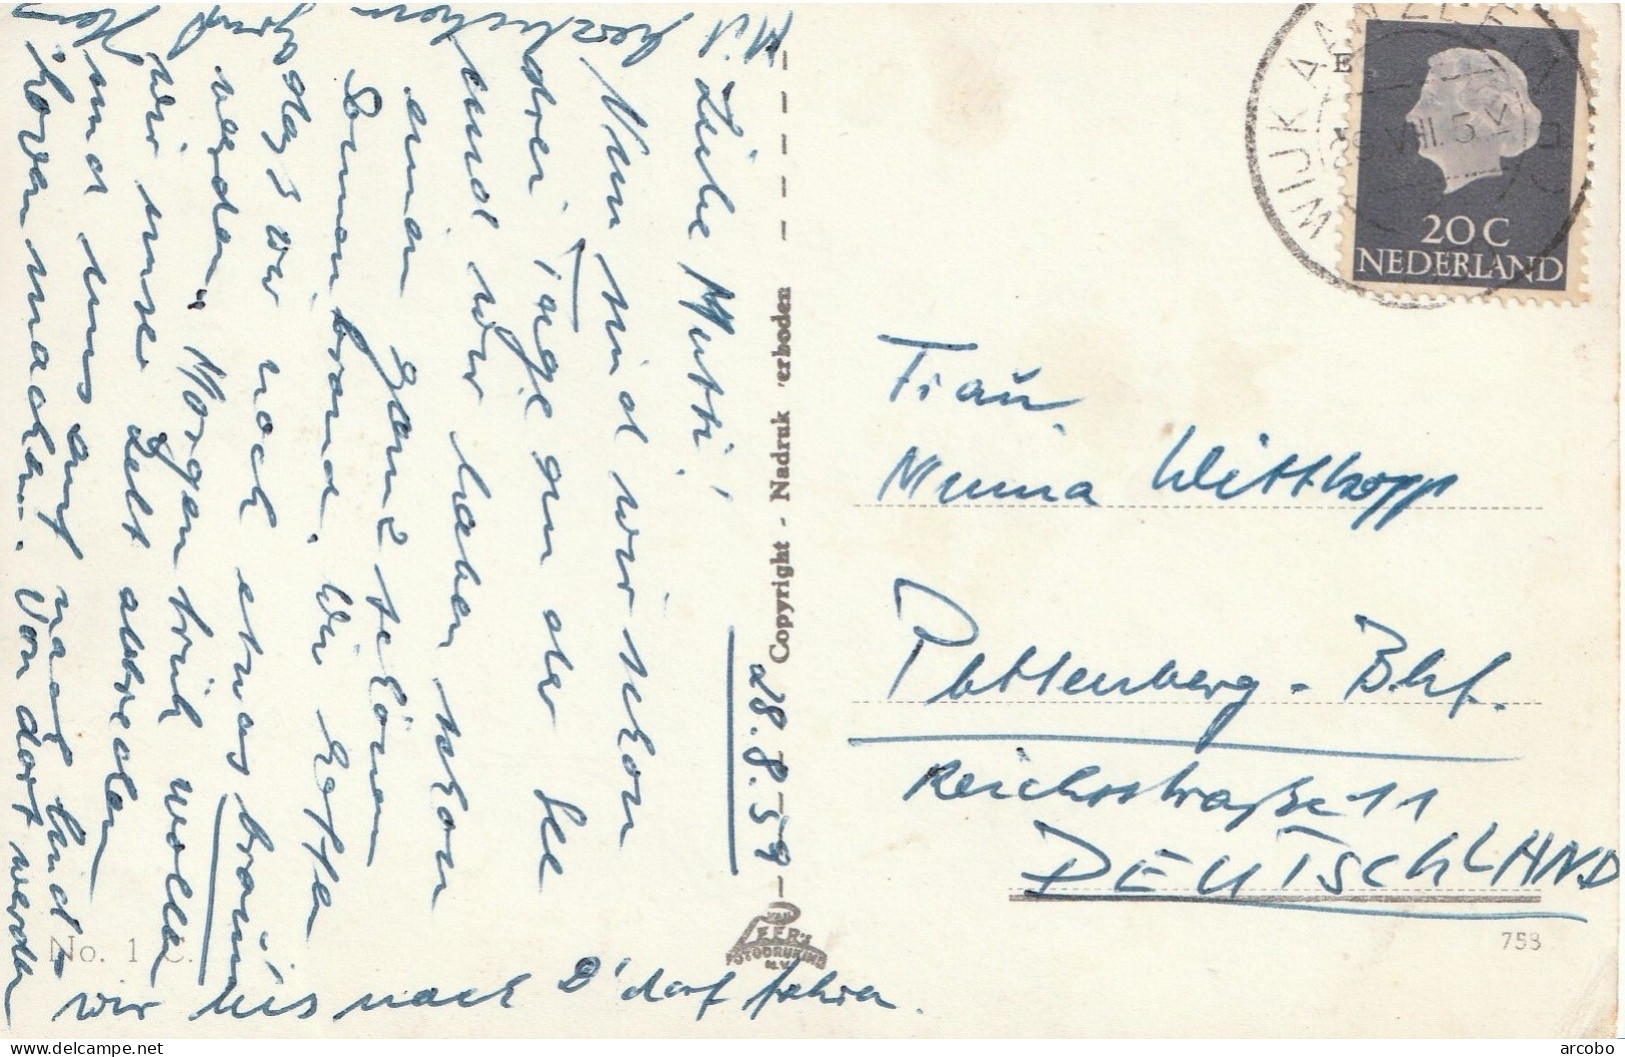 28.8.59
Liebe Mutti!
Nun sind wir schon
drei Tage an der See
und wir haben schon
einen ganz schönen
Sonnenbrand. Wir hoffen
dass wir noch etwas braun
werden. Morgen früh wollen
wir unser Zelt abbrechen
und uns auf nach
machen. Von dort werden
wir bis nach D'dorf fahren.
Mit herzlichem
Gruß
Copyright - Nadruk verboden
No. 1 C.
FOTODRUKIND
N.V.
WIJK AAN ZEE
20 C
NEDERLAND
Frau
Minna Wittkopp
Plettenberg - Bhf.
Reichsstraße 11
DEUTSCHLAND
758
www.delcampe.net
arcobo